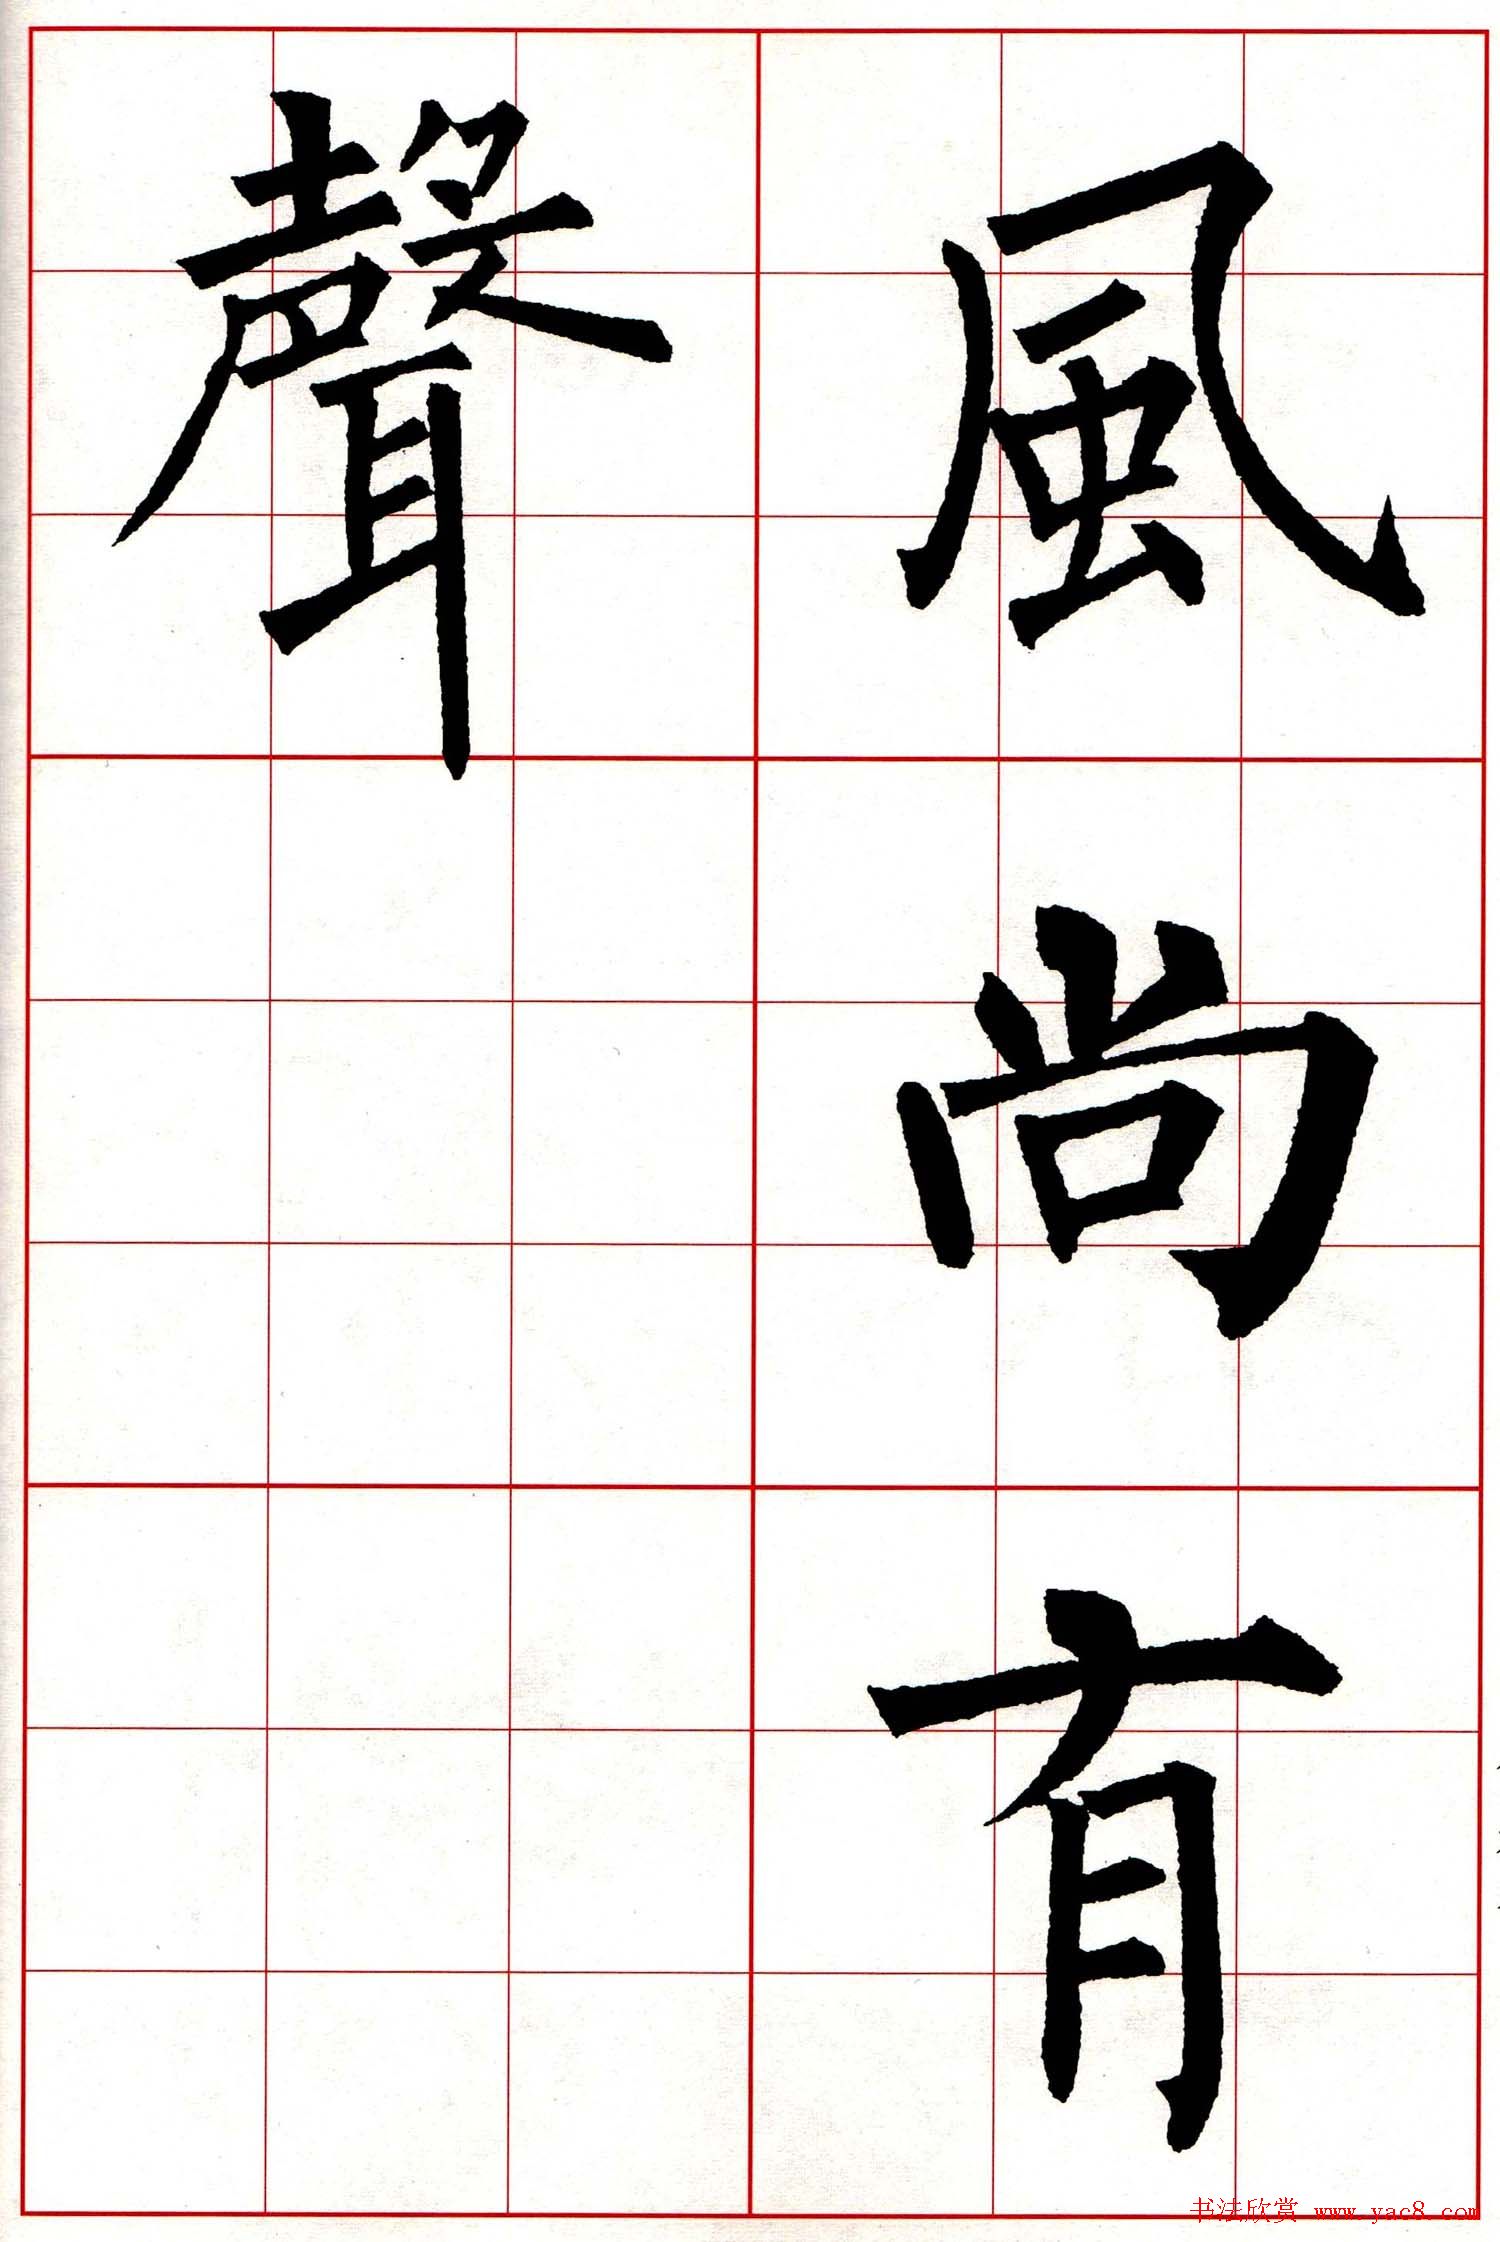 風尚有
聲
书法欣赏 www.yac8.com